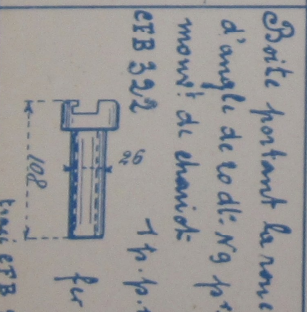 Boîte portant la roue
d'angle de 20 dts N9 pr
mouvt de chariot
CEB 392
1 p. p.
fer
26
108
CEB